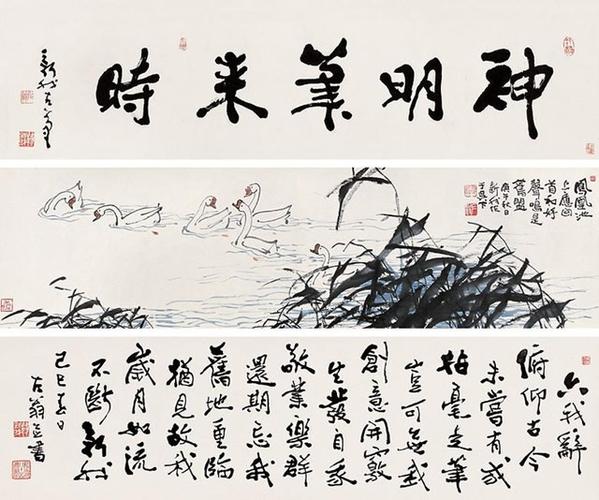 神明筆来時
新我左筆
鳳凰池
上應回
首和好
聲鳴是
舊盟
庚午秋日
新我作
六我辭
俯仰古今
未嘗有我
拈毫走筆
豈可無我
創意開竅
生發自我
敬業樂群
還期忘我
舊地重臨
猶見故我
歲月如流
不斷新我
己巳春日
左翁並書